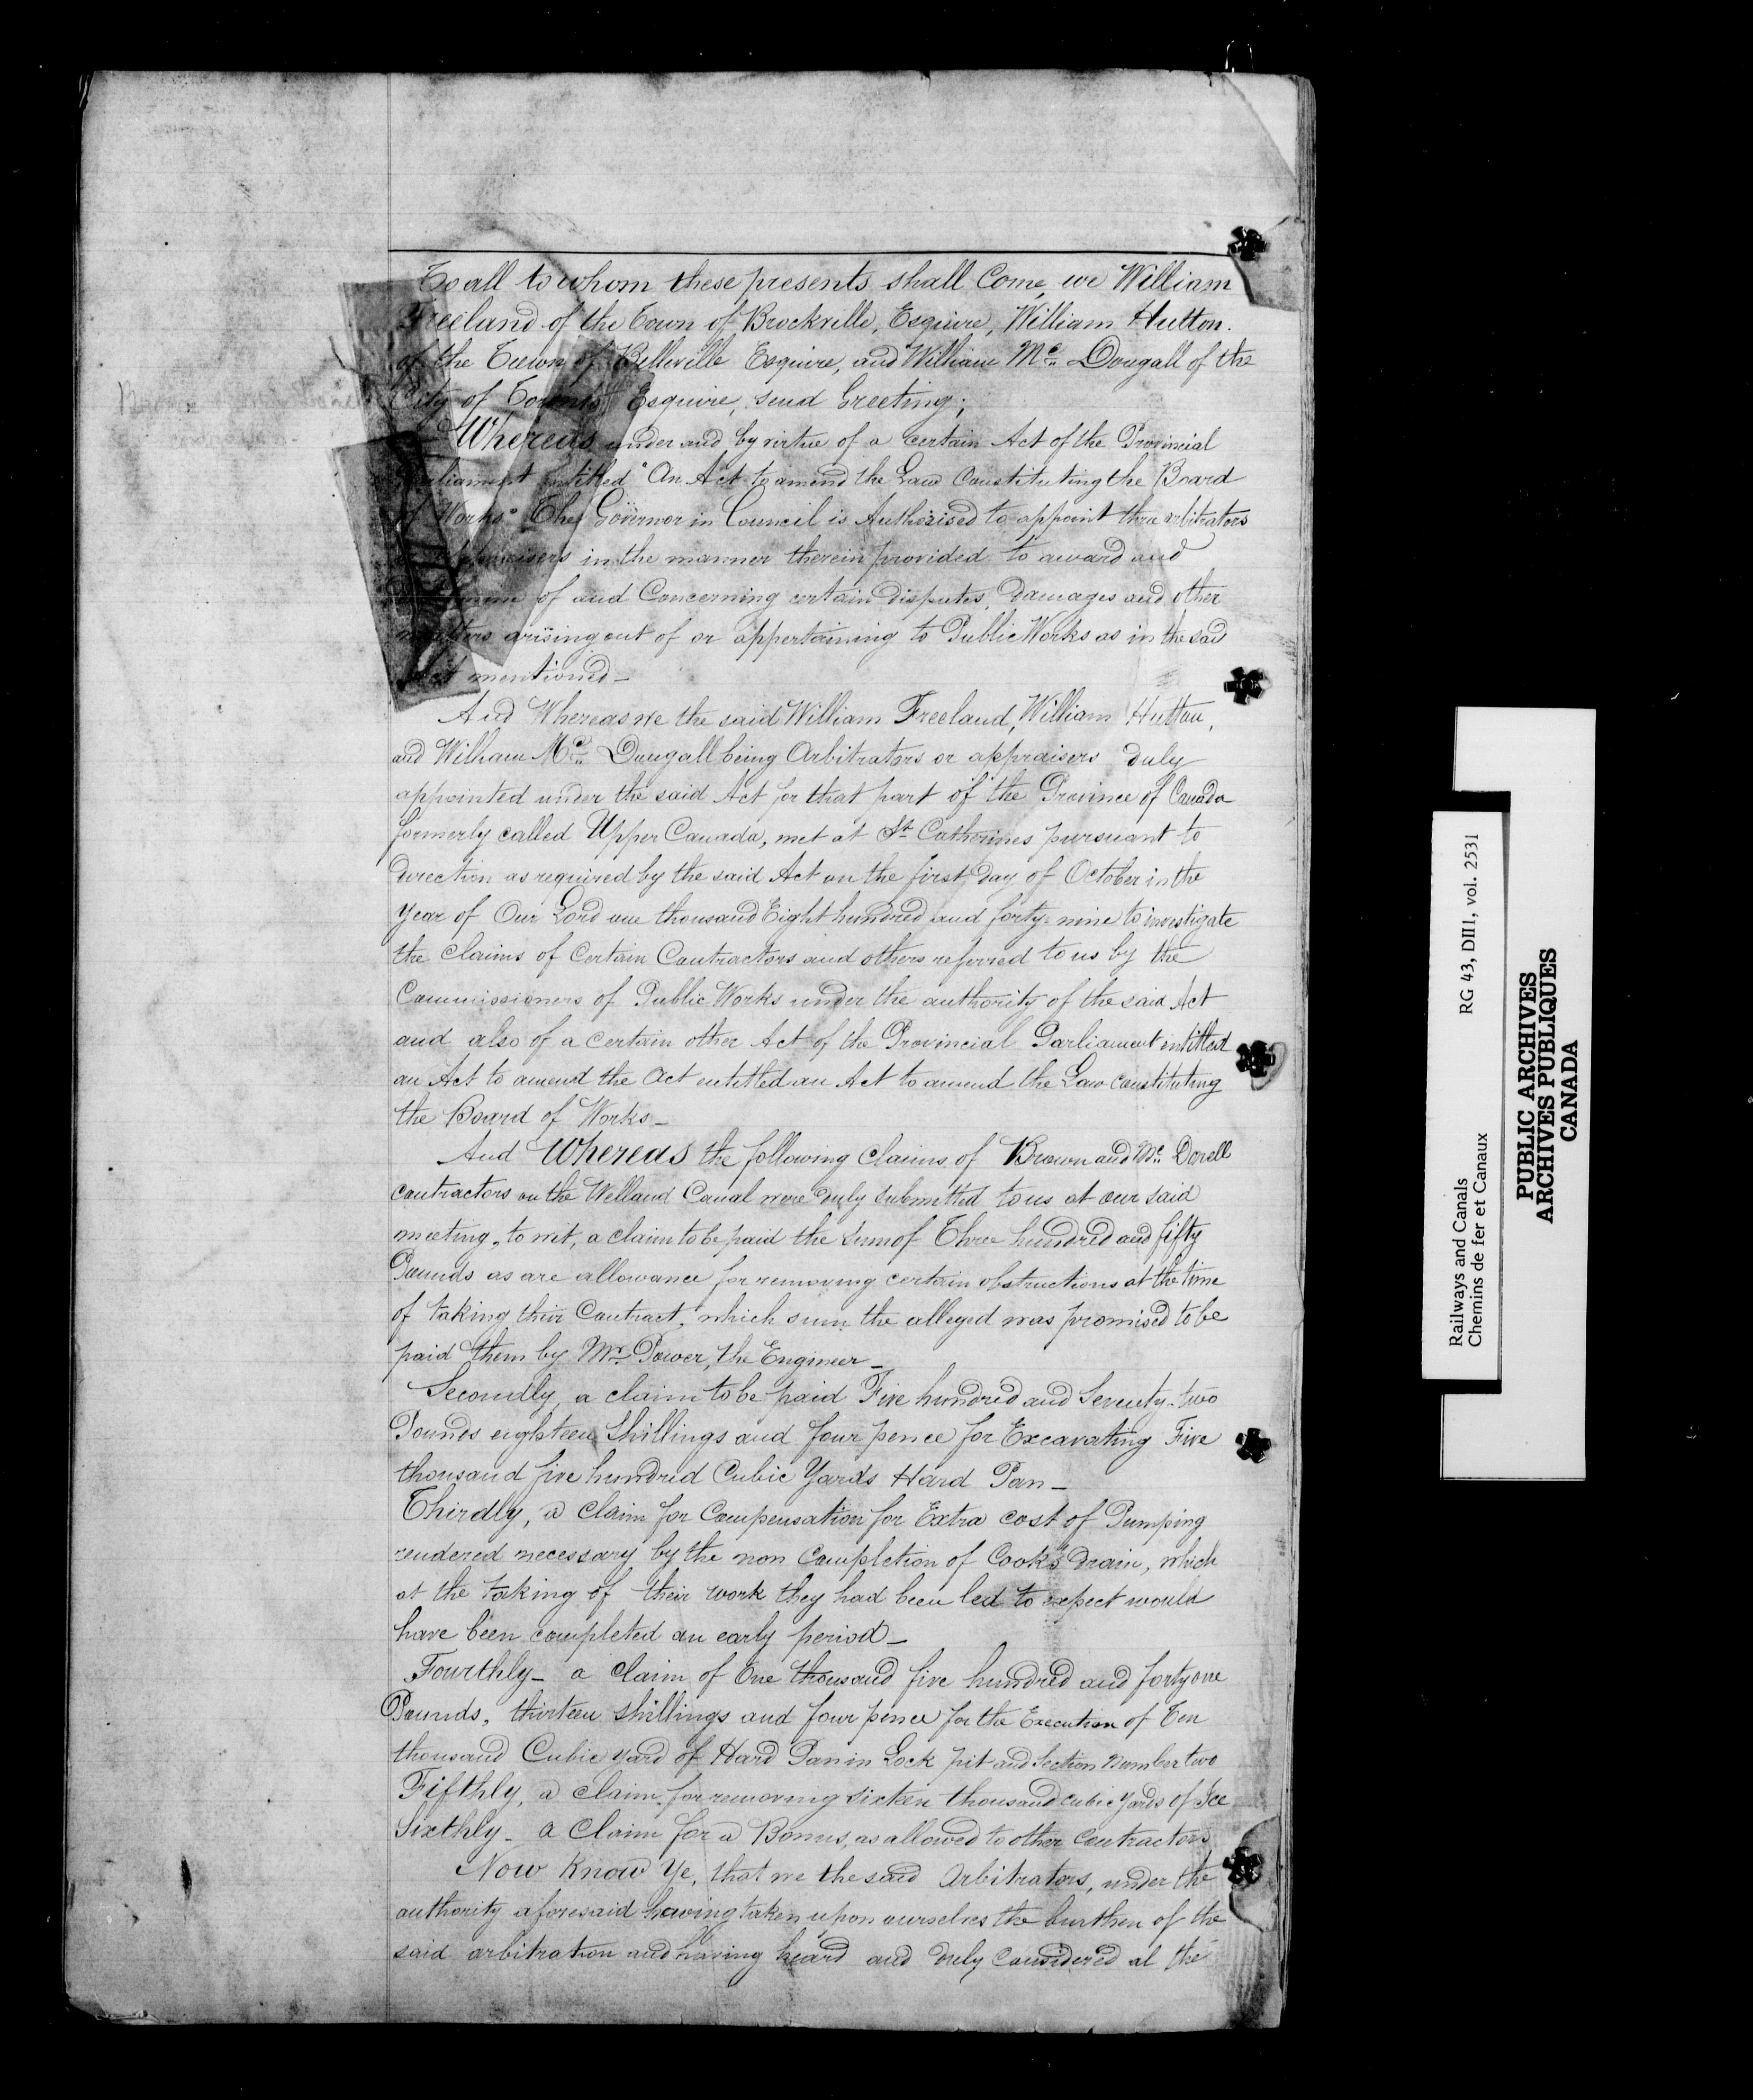 To all to whom these presents shall Come, we William
Freeland of the Town of Brockville, Esquire, William Hutton.
of the Town of Belleville Esquire, and William Mc. Dougall of the
City of Toronto Esquire, send Greeting;
Whereas under and by virtue of a certain Act of the Provincial
Parliament entitled "An Act to amend the Law Constituting the Board
of Works" The Governor in Council is Authorised to appoint three arbitrators
or appraisers in the manner therein provided to award and
determine of and Concerning certain disputes, damages and other
matters arising out of or appertaining to Public Works as in the said
Act mentioned_
And Whereas we the said William Freeland, William Hutton,
and William Mc. Dougall being Arbitrators or appraisers duly
appointed under the said Act for that part of the Province of Canada
formerly called Upper Canada, met at St. Catherines pursuant to
direction as required by the said Act on the first day of October in the
Year of Our Lord one thousand Eight hundred and forty-nine to investigate
the claims of Certain Contractors and others referred to us by the
Commissioners of Public Works under the authority of the said Act
and also of a certain other Act of the Provincial Parliament entitled
an Act to amend the Act entitled an Act to amend the Law constituting
the Board of Works_
And Whereas the following claims of Brown and Mc. Donell
contractors on the Welland Canal were duly submitted to us at our said
meeting, to wit, a claim to be paid the Sum of Three hundred and fifty
Pounds as are allowance for removing certain obstructions at the time
of taking their Contract, which sum the alleged was promised to be
paid them by Mr. Power, the Engineer_
Secondly, a claim to be paid Five hundred and Seventy-two
Pounds eighteen Shillings and four pence for Excavating Five
thousand five hundred Cubic Yards Hard Pan_
Thirdly, a Claim for Compensation for Extra cost of Pumping
rendered necessary by the non Completion of Cook's Drain, which
at the taking of their work they had been led to expect would
have been completed an early period_
Fourthly_ a Claim of One thousand five hundred and forty one
Pounds, thirteen shillings and four pence for the Execution of Ten
thousand Cubic yard of Hard Pan in Lock pit and Section number two
Fifthly, a Claim for removing sixteen thousand cubic Yards of Ice
Sixthly_ a Claim for a Bonus, as allowed to other Contractors
Now Know Ye, that we the said Arbitrators, under the
authority aforesaid having taken upon ourselves the burthen of the
said arbitration and having heard and duly Considered al the
Railways and Canals RG 43, DII1, vol. 2531
Chemins de fer et Canaux
PUBLIC ARCHIVES
ARCHIVES PUBLIQUES
CANADA